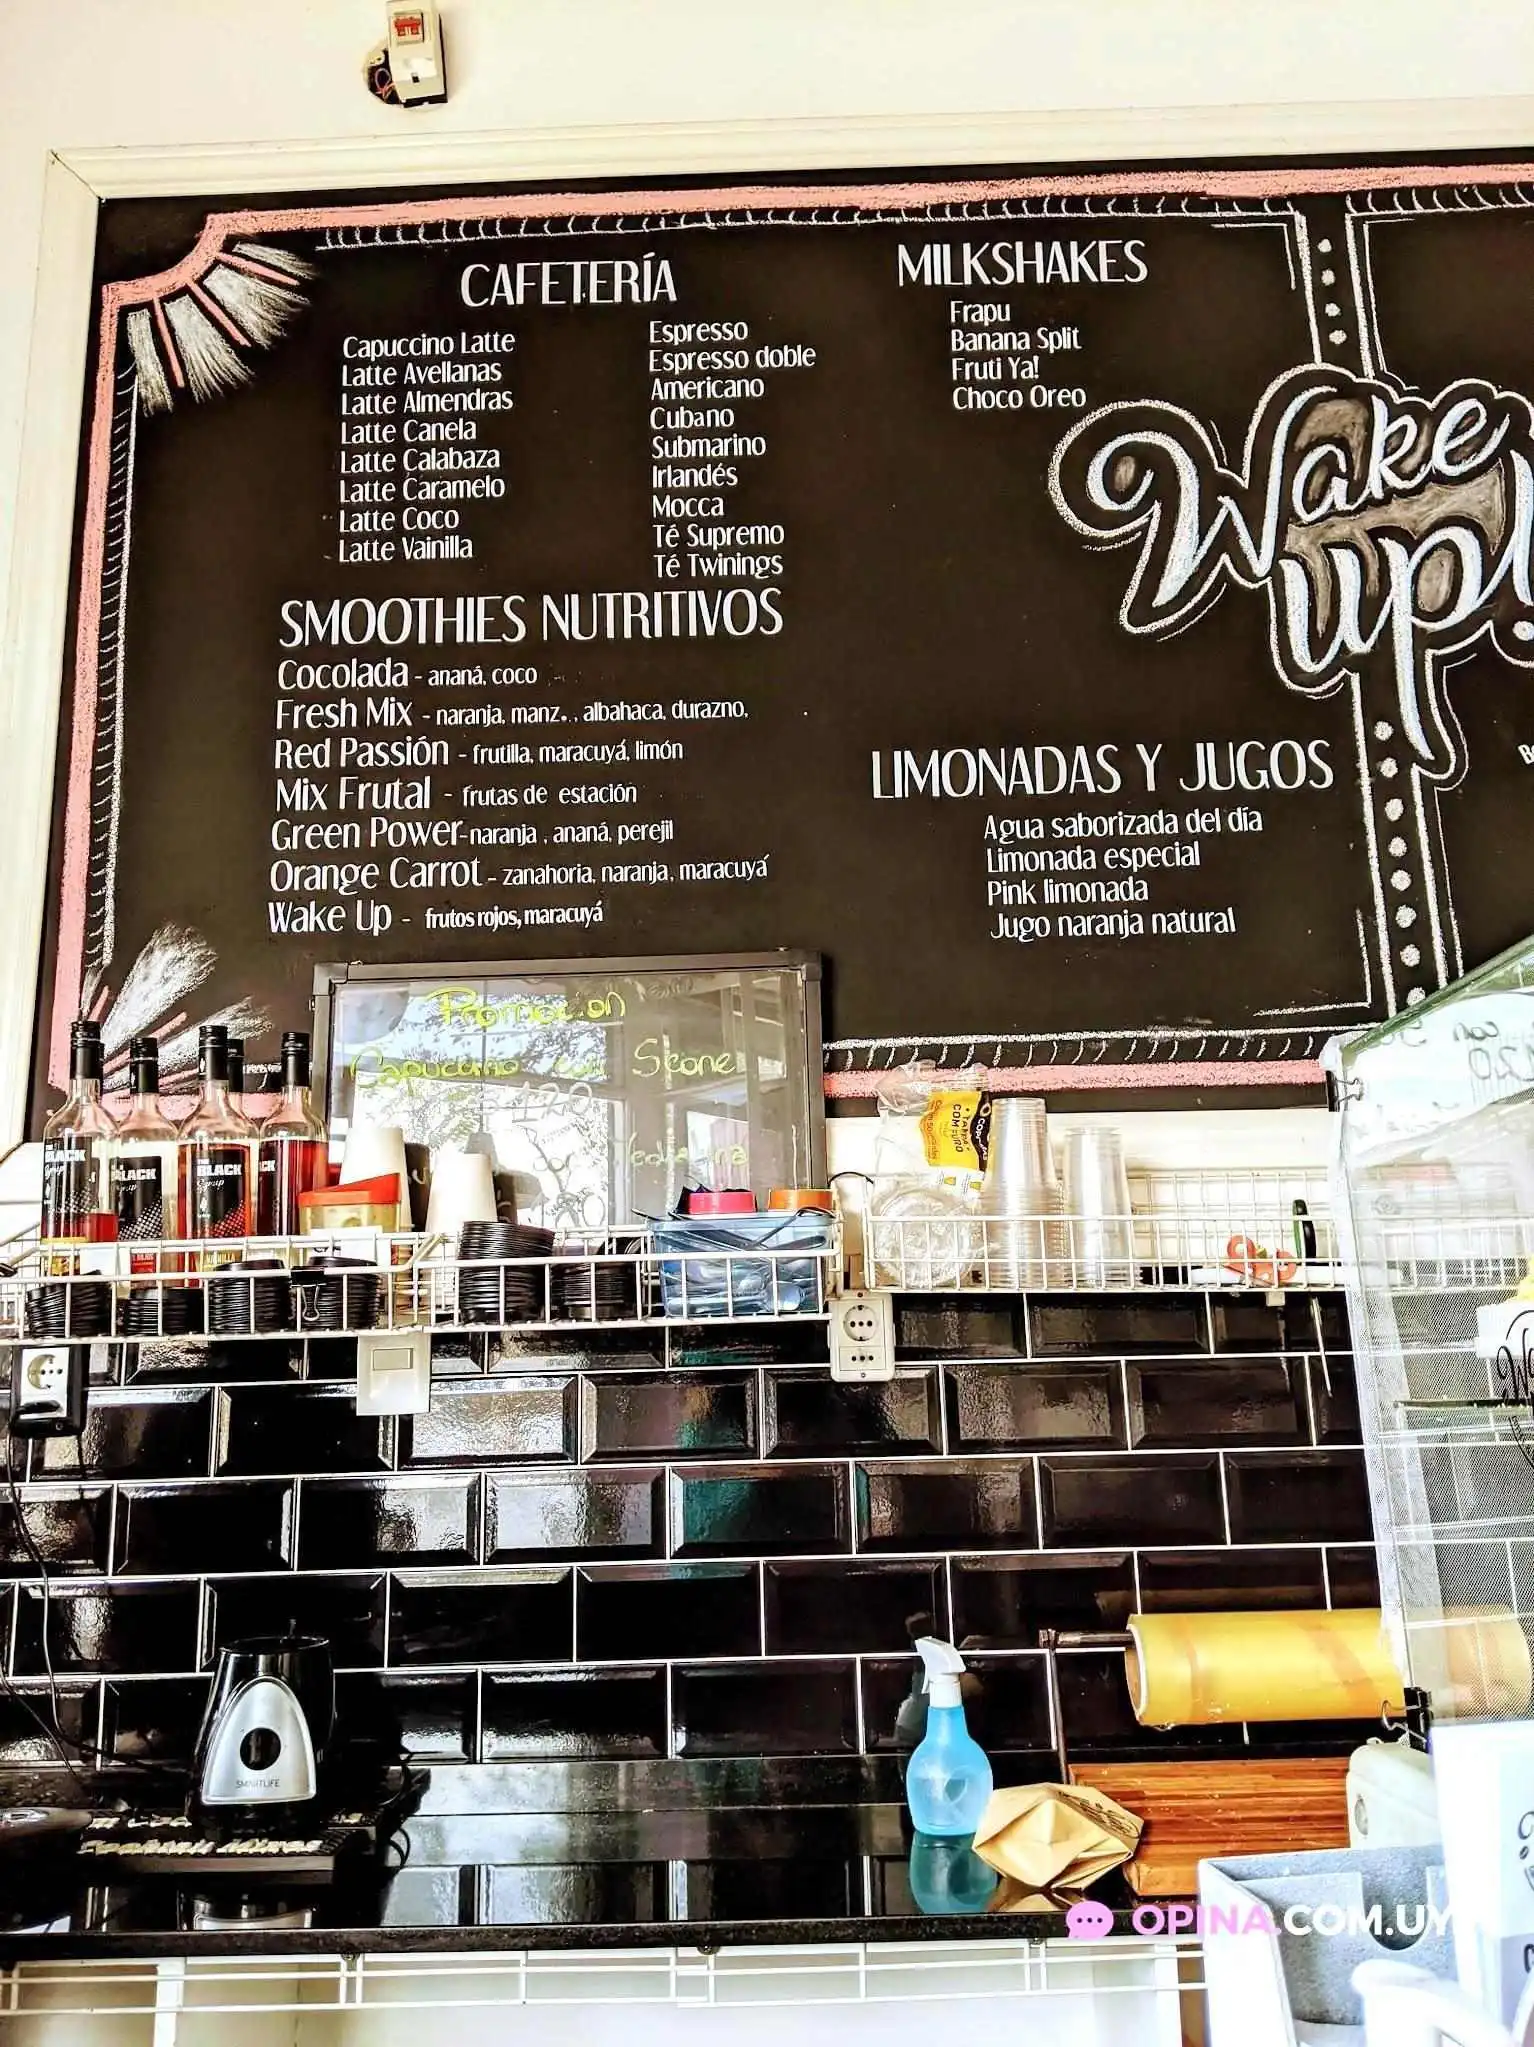 CAFETERÍA
Capuccino Latte
Latte Avellanas
Latte Almendras
Latte Canela
Latte Calabaza
Latte Caramelo
Latte Coco
Latte Vainilla
Espresso
Espresso doble
Americano
Cubano
Submarino
Irlandés
Mocca
Té Supremo
Té Twinings
MILKSHAKES
Frapu
Banana Split
Fruti Ya!
Choco Oreo
Wake
up!
SMOOTHIES NUTRITIVOS
Cocolada - ananá, coco
Fresh Mix - naranja, manz., albahaca, durazno,
Red Passión - frutilla, maracuyá, limón
Mix Frutal - frutas de estación
Green Power-naranja , ananá, perejil
Orange Carrot - zanahoria, naranja, maracuyá
Wake Up - frutos rojos, maracuyá
LIMONADAS Y JUGOS
Agua saborizada del día
Limonada especial
Pink limonada
Jugo naranja natural
Promocion
Capuccino con Scone
120
con
BLACK
Syrup
BLACK
BLACK
Syrup
BLACK
SMARTLIFE
OPINA.COM.UY